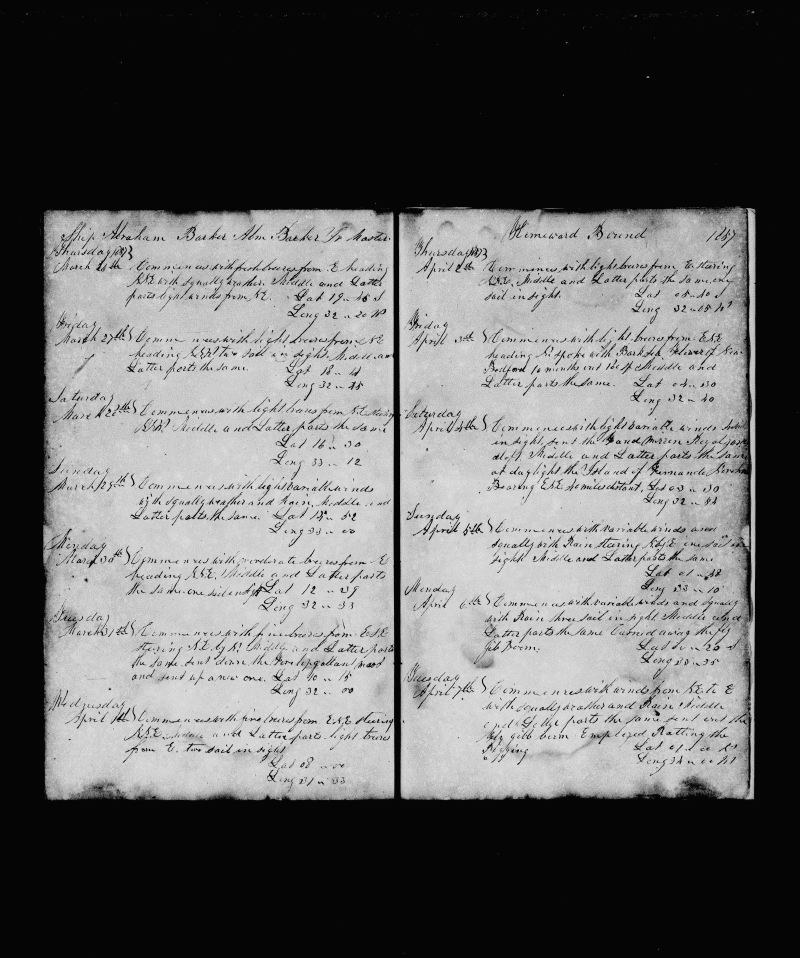 Ship Abraham Barker Abm Barker Jr Master
Thursday
March 26th Commences with fresh breeses from E heading
NNE with squally wether. Middle and Latter
parts light winds from NE. Lat 19 " 40 S
Long 32 " 20 W
Friday
March 27th Commences with light breeses from NE
heading two sail in sight Middle and
Latter parts the same. Lat 18 " 14
Long 32 " 45
Saturday
March 28th Commences with light breses from
Middle and Latter parts the same
Lat 16 " 30
Long 33 " 12
Sunday
March 29th Commences with light variable winds
with squally weather and Rain. Middle and
Latter parts the same. Lat 52
Long 33 " 00
Monday
March 30th Commences with moderate breeses from E
heading NNE. Middle and Latter parts
the same one sail Lat 12 " 39
Long 32 " 33
Tuesday
March 31th Commences with fine breses from ENE
steering Middle and Latter parts
the same sent down the foretopgallant mast
and sent up a new one. Lat 10 " 15
Long 32 " 00
Wednesday
April 1st Commences with fine breses from ENE steering
NNE. Middle and Latter parts light breses
from E. two sail in sight
Lat 08 " 00
Long 31 " 33
Homeward Bound 1867
Thursday
April 2th Commences with light breses from E steering
Middle and Latter parts the same one
sail in sight. Lat 05 " 40 S
Long 32 " 05 W
Friday
April 3th Commences with light breeses from ENE
heading N. spoke with Bark of New
Bedford 10 months out Middle and
Latter parts the same. Lat 04 " 30
Long 32 " 40
Saturday
April 4th Commences with light variable winds
in sight sent the and Royal
aloft Middle and Latter parts the same
at daylight the Island of Fernande
Bearing ENE 40 miles distant. Lat 03 " 30
Long 32 " 44
Sunday
April 5th Commences with variable winds and
squally with Rain steering one sail in
sight Middle and Latter parts the same
Lat 01 " 38
Long 33 " 10
Monday
April 6th Commences with variable winds and squally
with Rain three sail in sight Middle and
Latter parts the same Carried away the fly
gib Boom. Lat 00 " 20 S
Long 33 " 35
Tuesday
April 7th Commences with winds from NE to E
with squally weather and Rain Middle
and Latter parts the same sent out the
fly gibb boom Employed Ratling the
Rigging Lat 01 " 00 N
Long 34 " 00 W